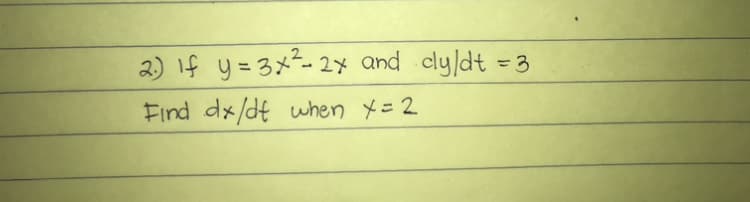 2.) If y = 3x² - 2x and dy/dt = 3
Find dx/dt when x = 2